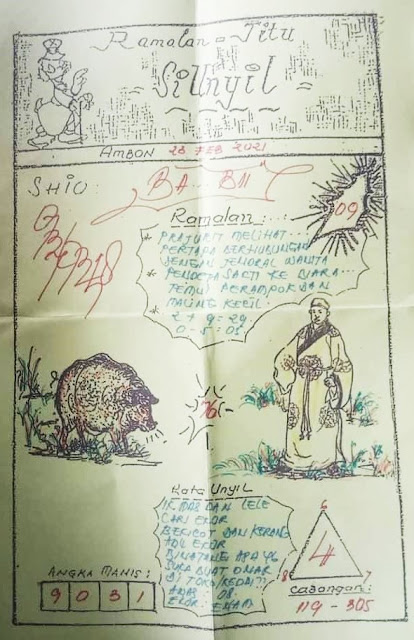 Ramalan = Titu
Si Unyil =
AMBON 28 FEB 2021
SHIO:
BA...BII
09
Ramalan:...:
* PRAJURIT MELIHAT...
PERTAPA BERHUBUNGAN
DENGN JENDRAL WANITA
* PENDETA SAKTI KE UDARA...
TEMUI PERAMPOK DAN
MALING KECIL.
2 + 9 = 29
0 - 5 = 05
76
Kata Unyil
IK. MAS DAN LELE
CARI EKOR
BEKICOT DAN KERANG
ADU EKOR
BINATANG APA YG
SUKA BUAT ONAR
DI TOKO/KEDAI??
08
EKOR: ENAM
6
4
8 7
ANGKA MANIS:
9 0 3 1
Cabangan:
119 - 305